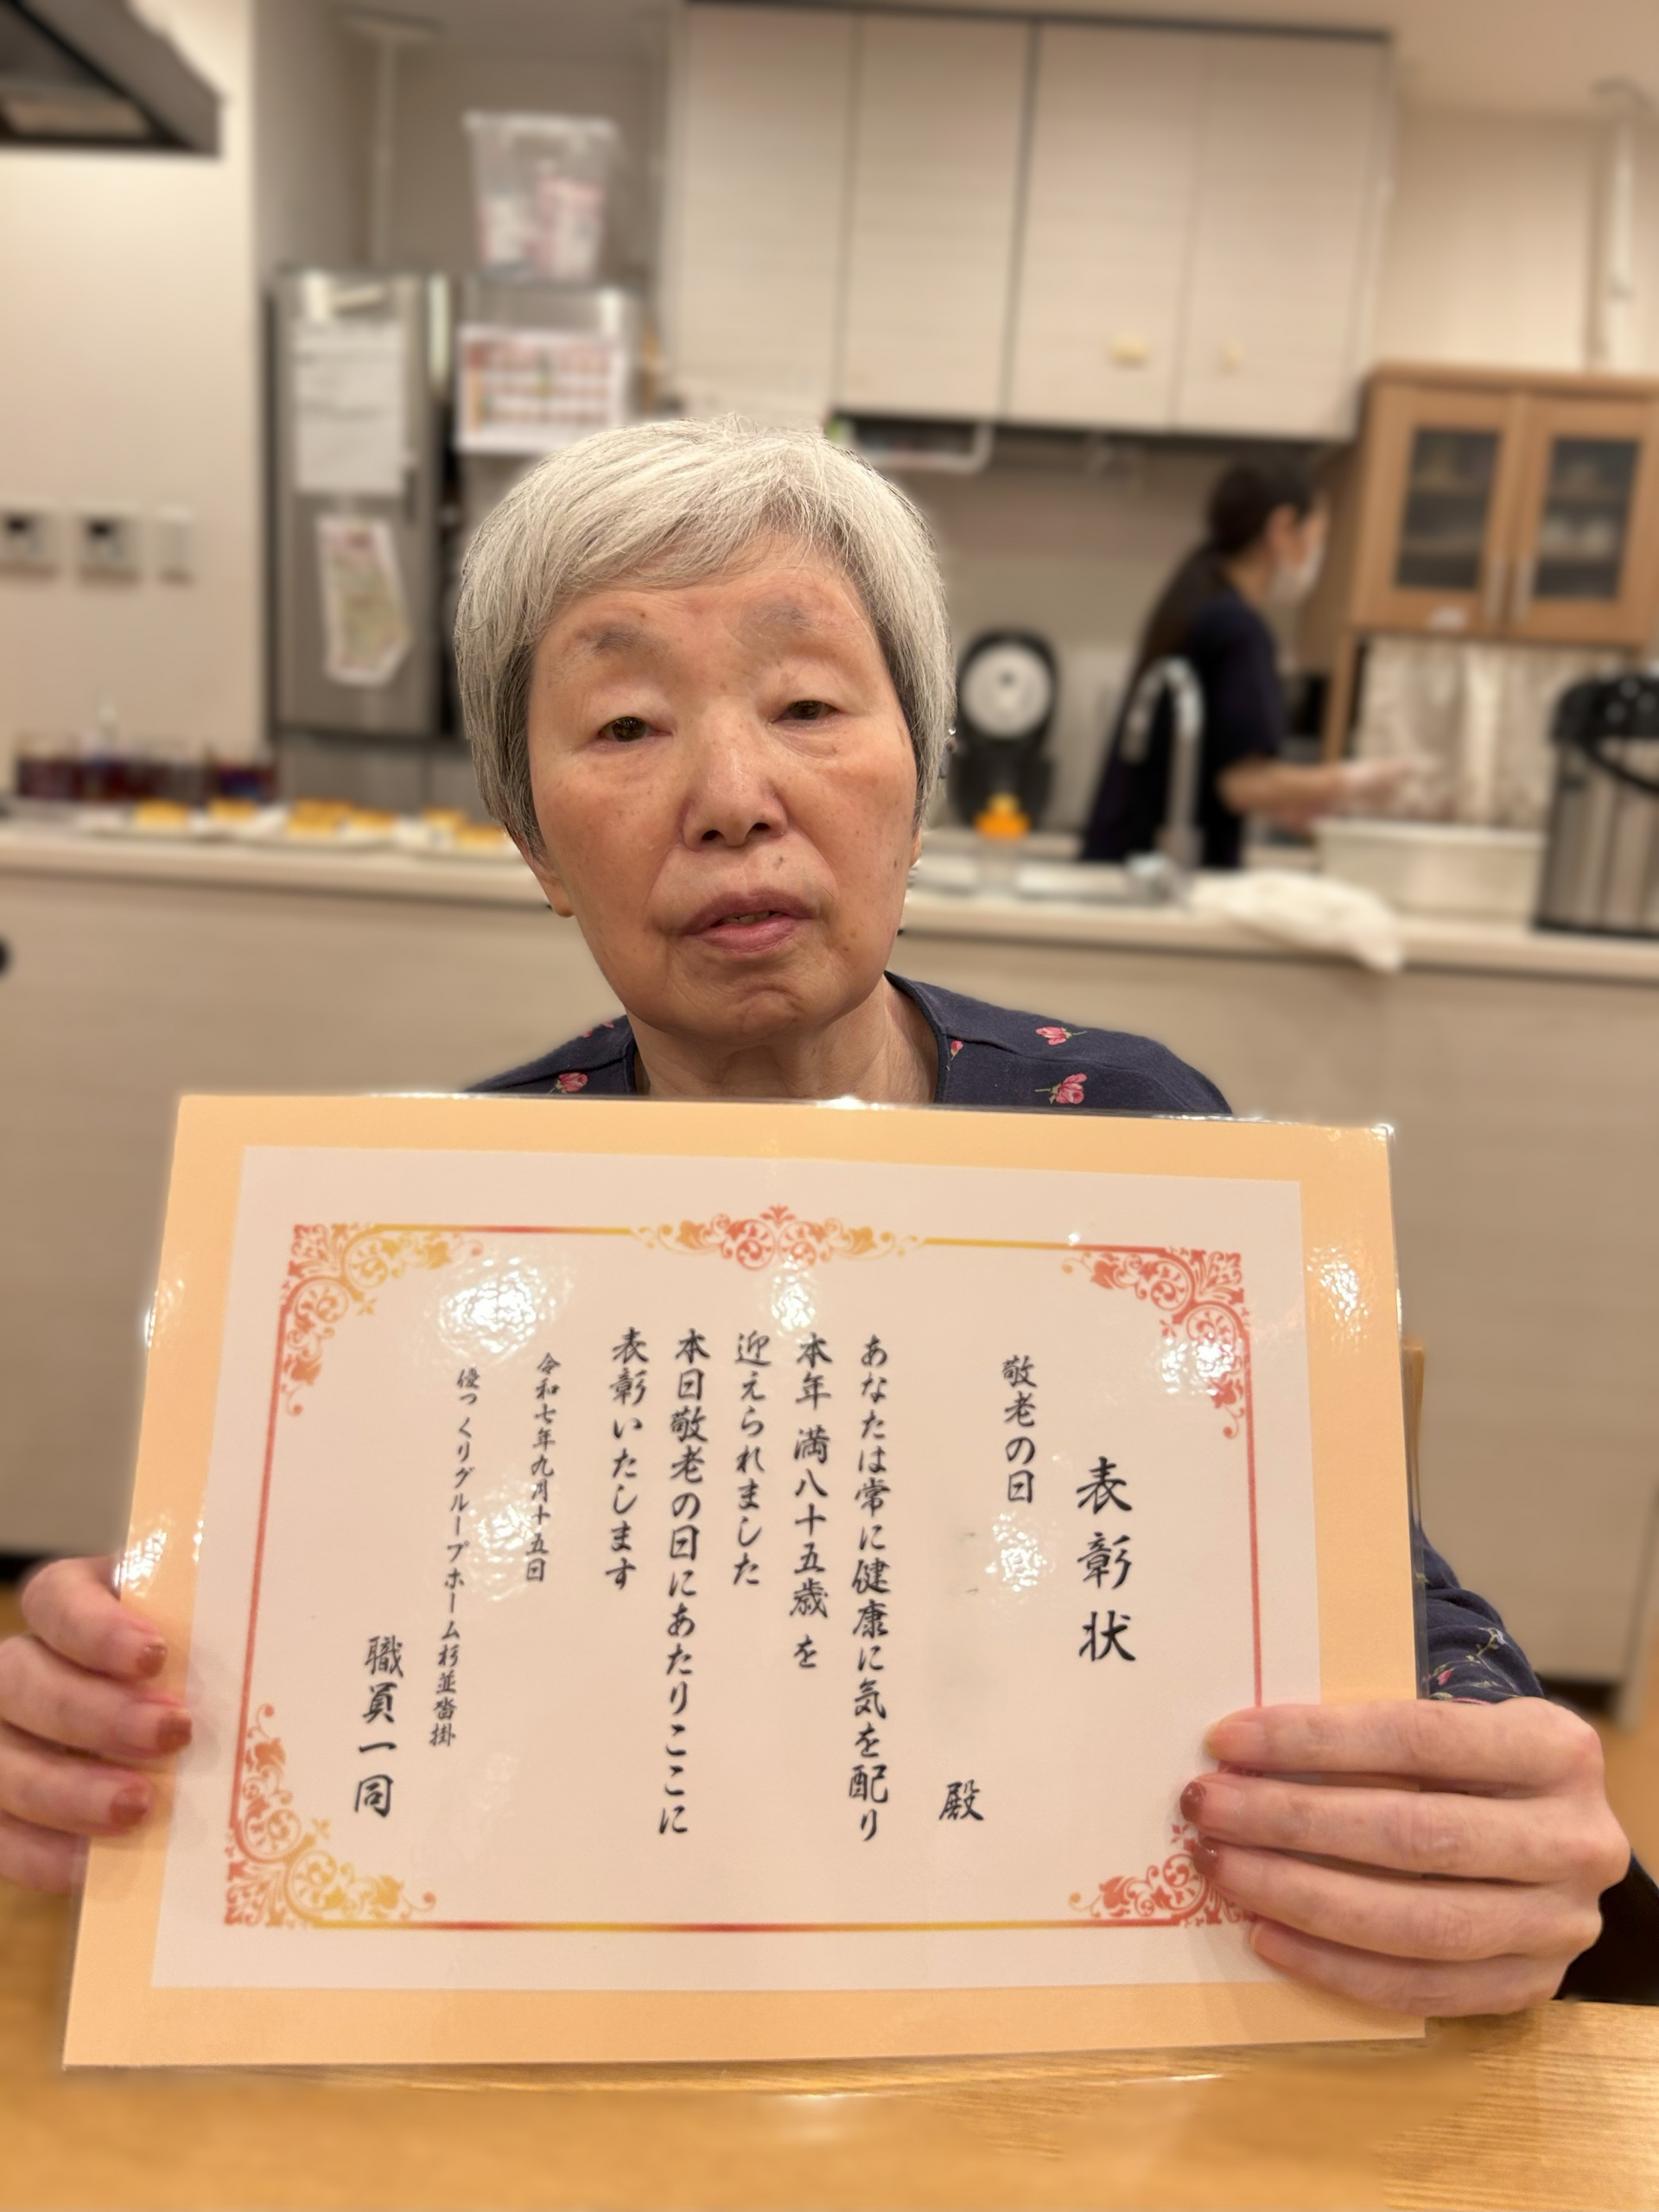 表彰状
敬老の日
殿
あなたは常に健康に気を配り
本年 満八十五歳 を
迎えられました
本日敬老の日にあたりここに
表彰いたします
令和七年九月十五日
優っくりグループホーム杉並沓掛
職員一同